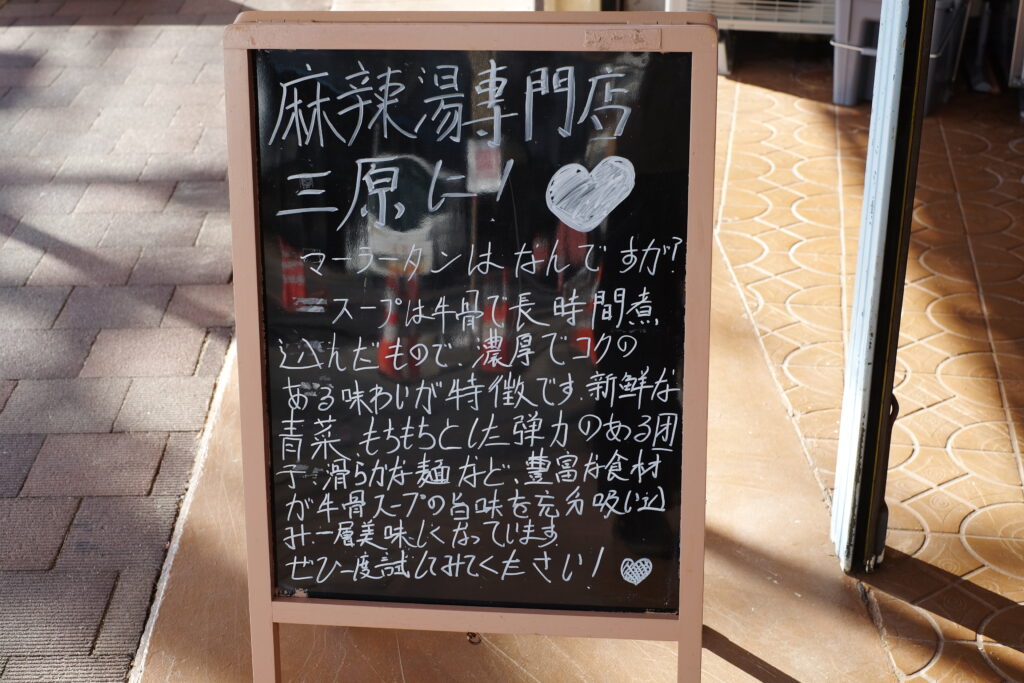 麻辣湯専門店
三原に!
マーラータンはなんですが?
スープは牛骨で長時間煮
込んだもので濃厚でコクの
ある味わいが特徴です。新鮮な
青菜、もちもちとした弾力のある団
子、滑らかな麺など、豊富な食材
が牛骨スープの旨味を充分吸い込
み一層美味しくなっています
ぜひ一度試してみてくたさい!